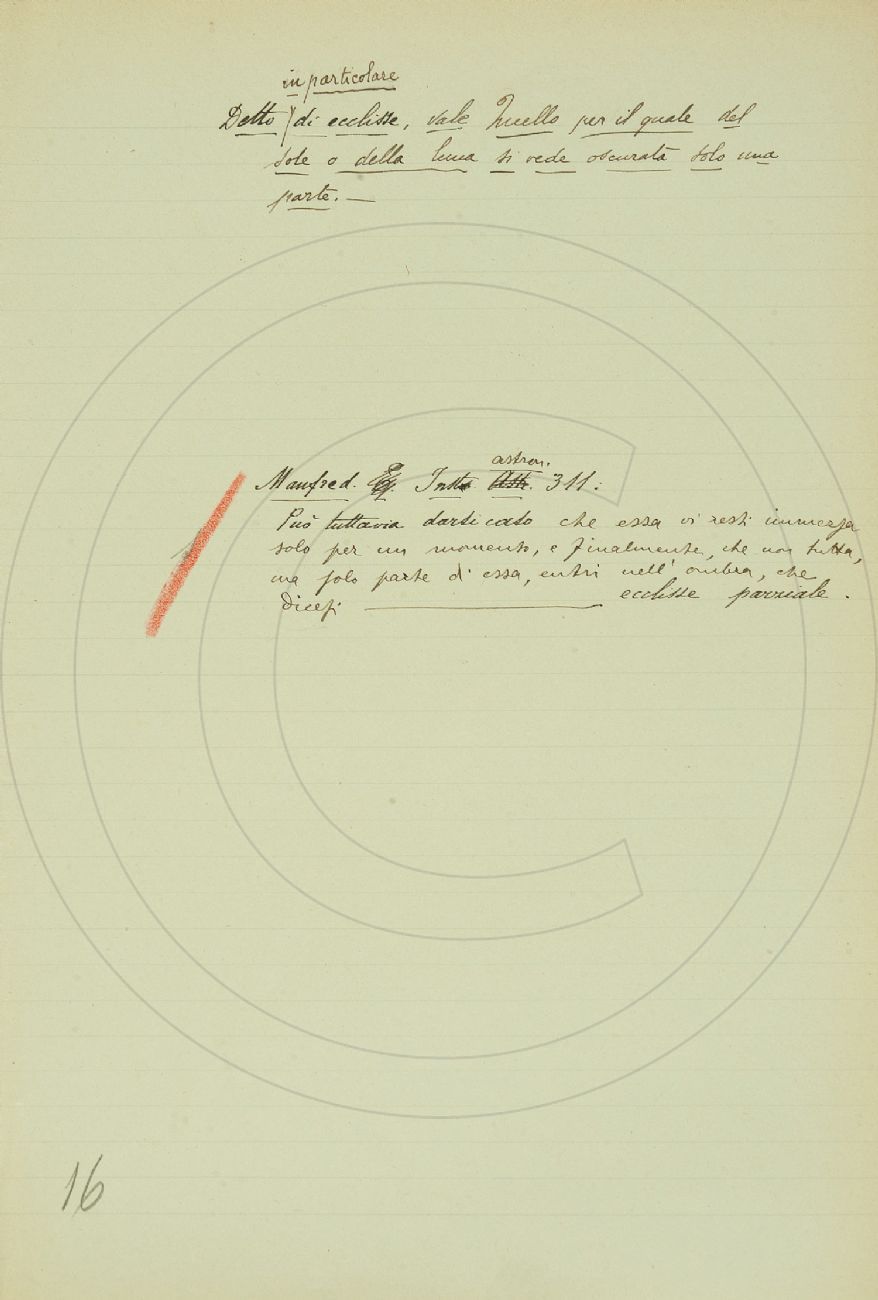 in particolare
Detto di ecclisse, vale Quello per il quale del
sole o della luna si vede oscurata solo una
parte. —
astron.
Manfred. Instit. 311:
Può tuttavia darsi caso che essa vi resti immersa
solo per un momento, e finalmente, che non tutta,
ma solo parte d' essa, entri nell' ombra, che
dicesi ecclisse parziale.
16